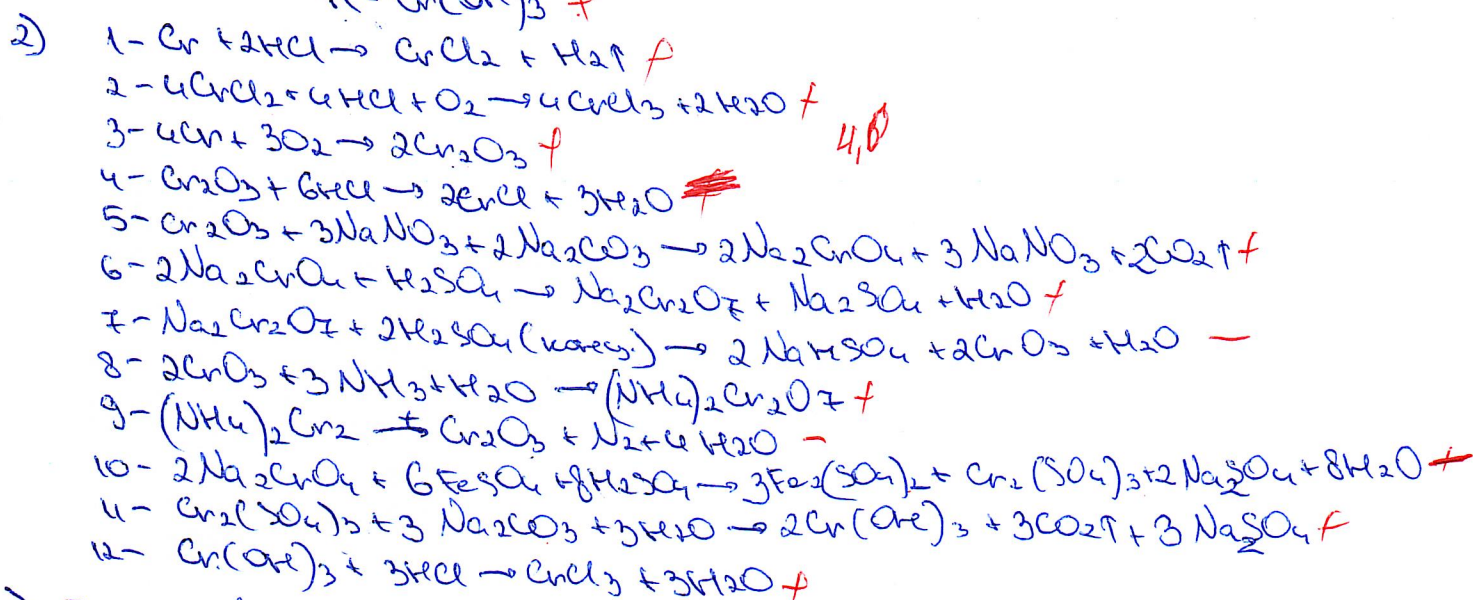 Cr(OH)3 +
2) 1- Cr + 2HCl → CrCl2 + H2↑ +
2- 4CrCl2 + 4HCl + O2 → 4CrCl3 + 2H2O +
4,8
3- 4Cr + 3O2 → 2Cr2O3 +
4- Cr2O3 + 6HCl → 2CrCl + 3H2O
5- Cr2O3 + 3NaNO3 + 2Na2CO3 → 2Na2CrO4 + 3NaNO3 + 2CO2↑ +
6- 2Na2CrO4 + H2SO4 → Na2Cr2O7 + Na2SO4 + H2O +
7- Na2Cr2O7 + 2H2SO4 (конец.) → 2NaHSO4 + 2CrO3 + H2O −
8- 2CrO3 + 3NH3 + H2O → (NH4)2Cr2O7 +
9- (NH4)2Cr2 t→ Cr2O3 + N2 + 4H2O −
10- 2Na2CrO4 + 6FeSO4 + 8H2SO4 → 3Fe2(SO4)2 + Cr2(SO4)3 + 2Na2SO4 + 8H2O +
11- Cr2(SO4)3 + 3Na2CO3 + 3H2O → 2Cr(OH)3 + 3CO2↑ + 3Na2SO4 +
12- Cr(OH)3 + 3HCl → CrCl3 + 3H2O +